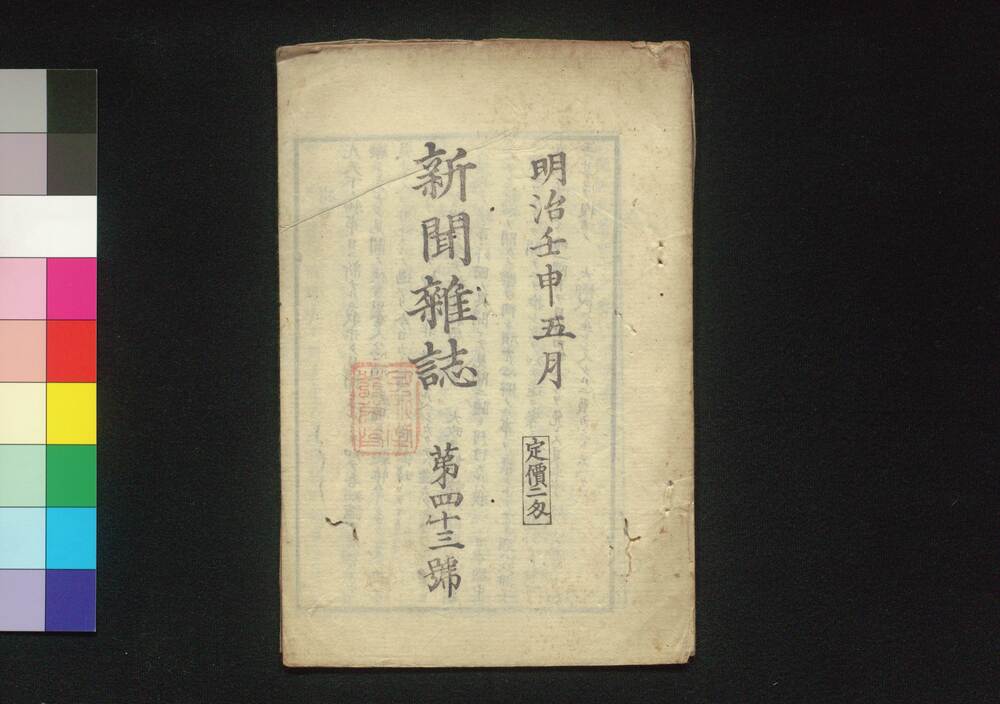 明治壬申五月
定價二匁
新聞雜誌
第四十三號